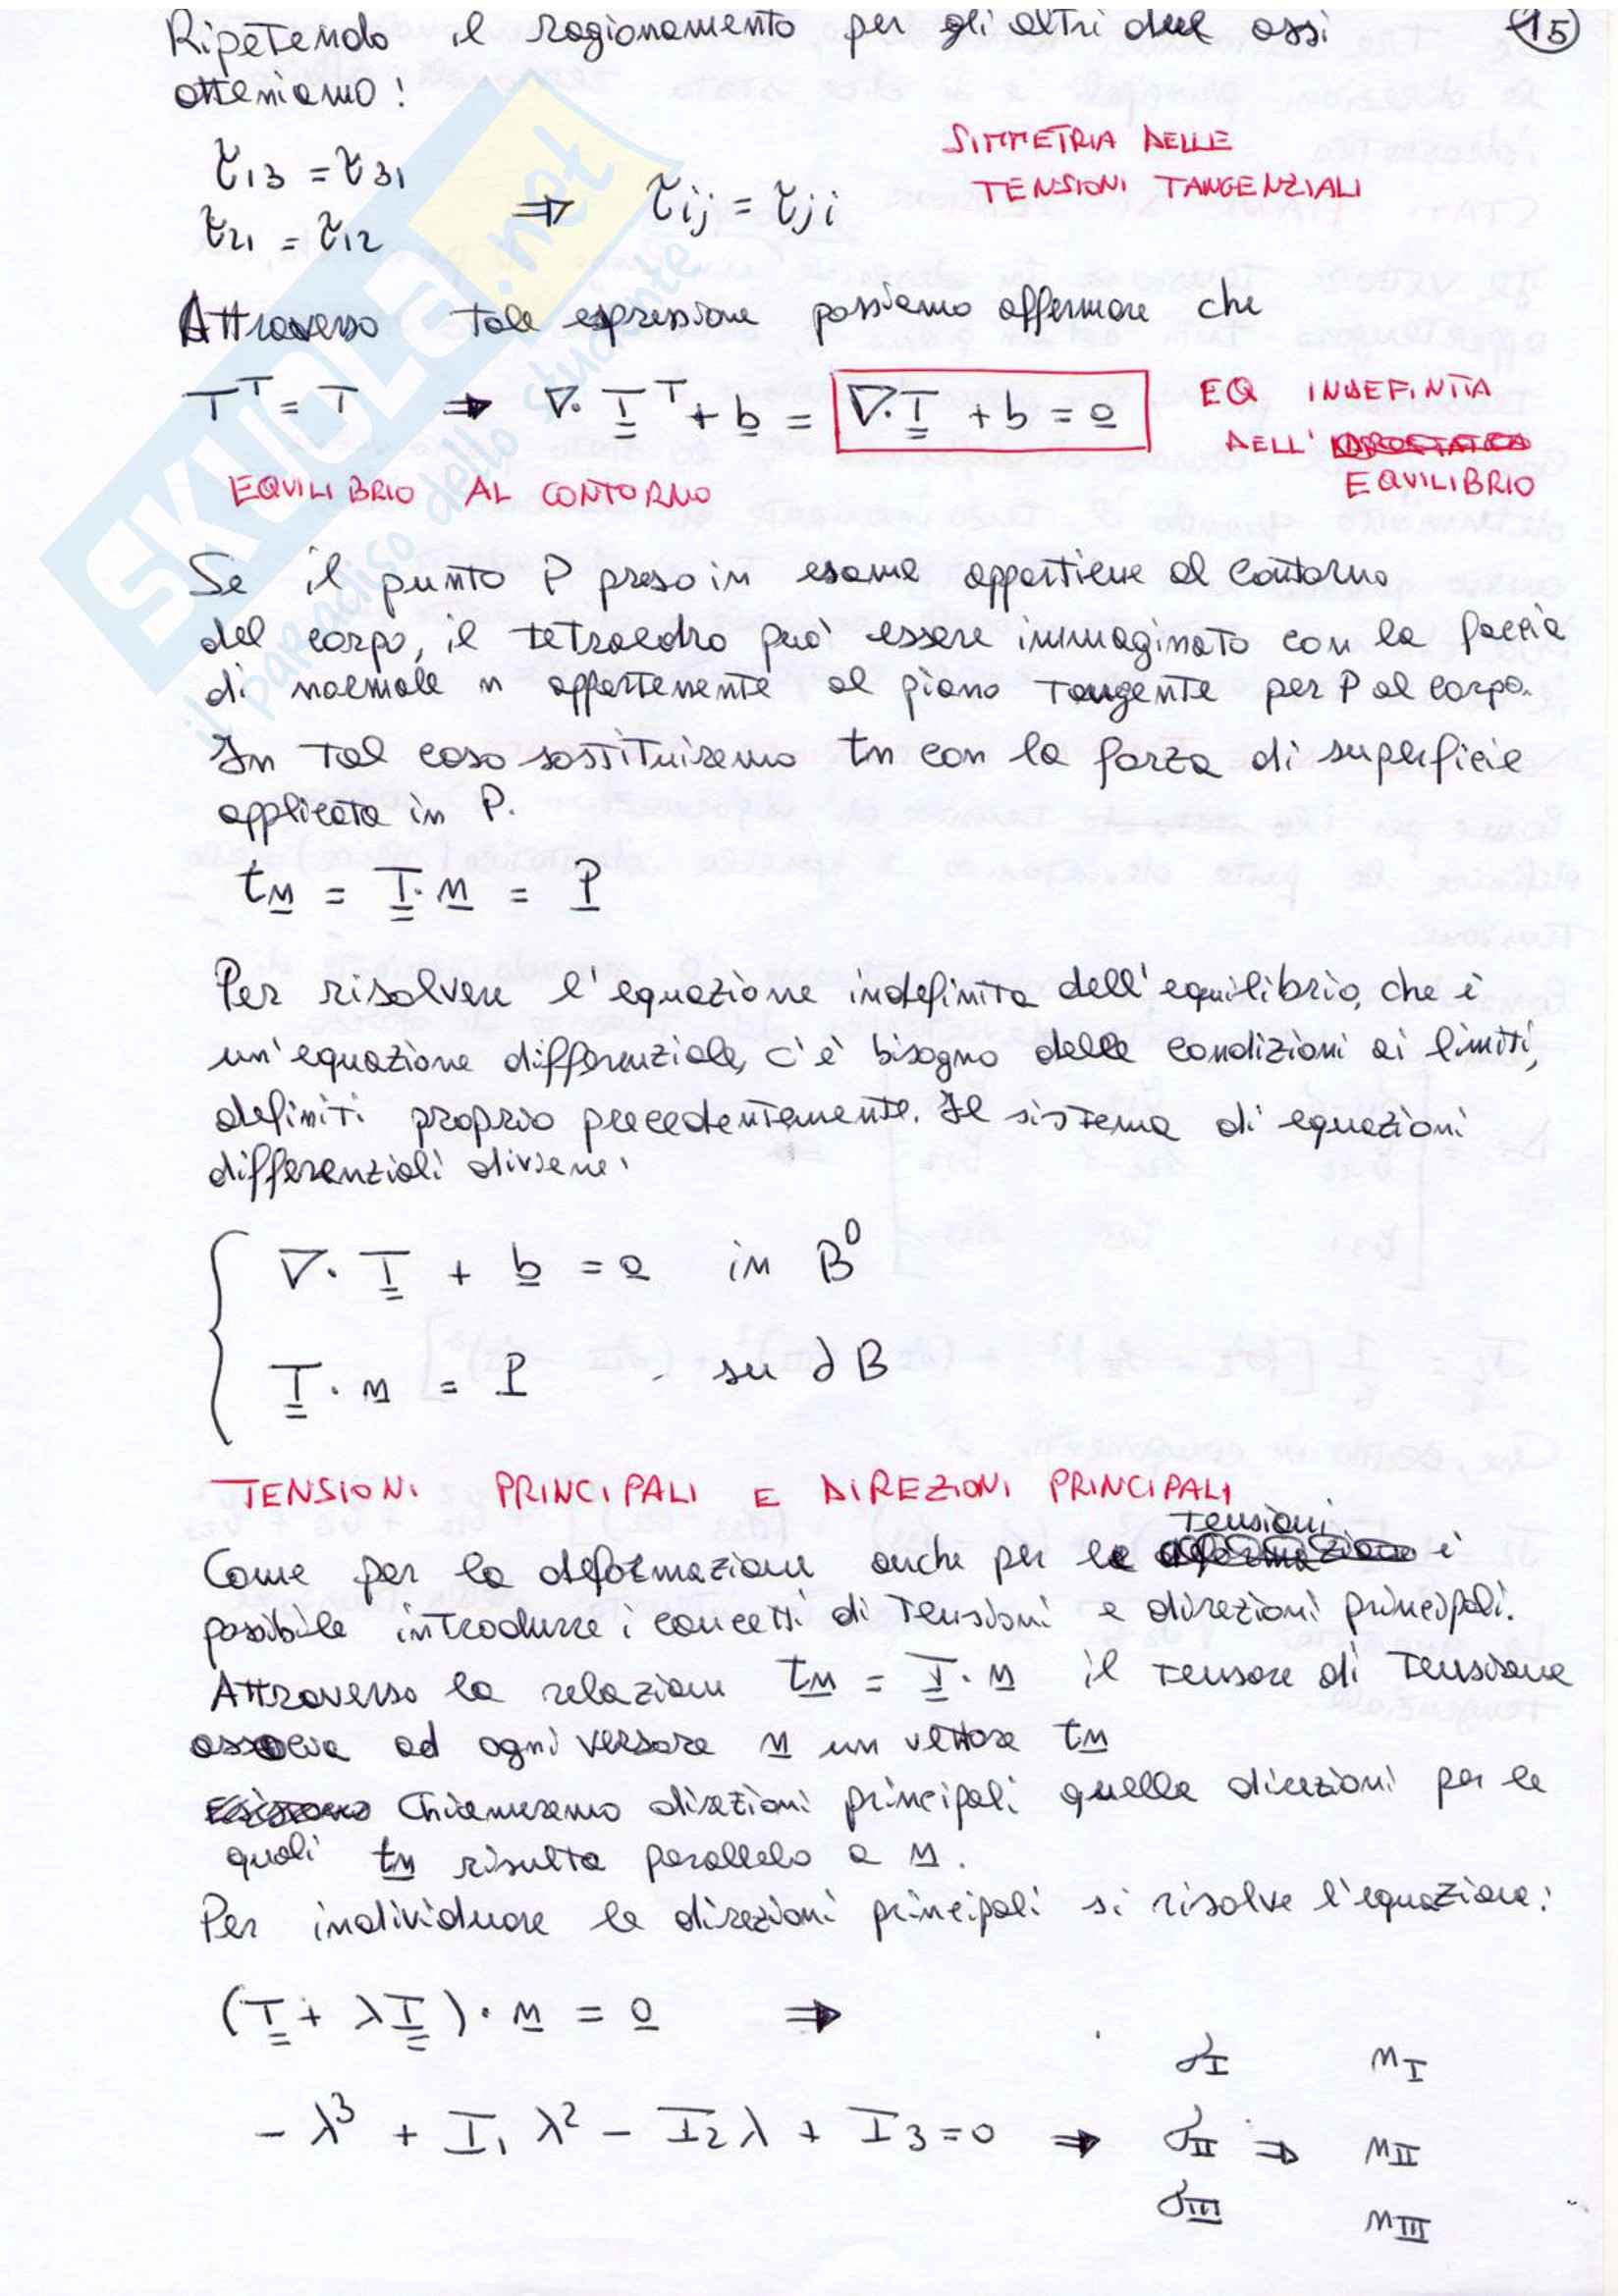 Ripetendo il ragionamento per gli altri due assi
15
otteniamo:
τ13 = τ31
τ21 = τ12
⇒ τij = τji
SIMMETRIA DELLE
TENSIONI TANGENZIALI
Attraverso tale espressione possiamo affermare che
T^T = T ⇒ ∇·T^T + b = ∇·T + b = 0
EQ INDEFINITA
DELL'
EQUILIBRIO
EQUILIBRIO AL CONTORNO
Se il punto P preso in esame appartiene al contorno
del corpo, il tetraedro può essere immaginato con la faccia
di normale n appartenente al piano tangente per P al corpo.
In tal caso sostituiremo tn con la forza di superficie
applicata in P.
tn = T·n = P
Per risolvere l'equazione indefinita dell'equilibrio, che è
un'equazione differenziale, c'è bisogno delle condizioni ai limiti,
definiti proprio precedentemente. Il sistema di equazioni
differenziali diviene:
∇·T + b = 0 in B⁰
T·n = P su ∂B
TENSIONI PRINCIPALI E DIREZIONI PRINCIPALI
Come per la deformazione anche per le tensioni è
possibile introdurre i concetti di tensioni e direzioni principali.
Attraverso la relazione tn = T·n il tensore di tensione
associa ad ogni versore n un vettore tn
Chiameremo direzioni principali quelle direzioni per le
quali tn risulta parallelo a n.
Per individuare le direzioni principali si risolve l'equazione:
(T + λI)·n = 0 ⇒
-λ³ + I₁λ² - I₂λ + I₃ = 0 ⇒
σI nI
σII ⇒ nII
σIII nIII
SKUOLA.net
il paradiso dello studente